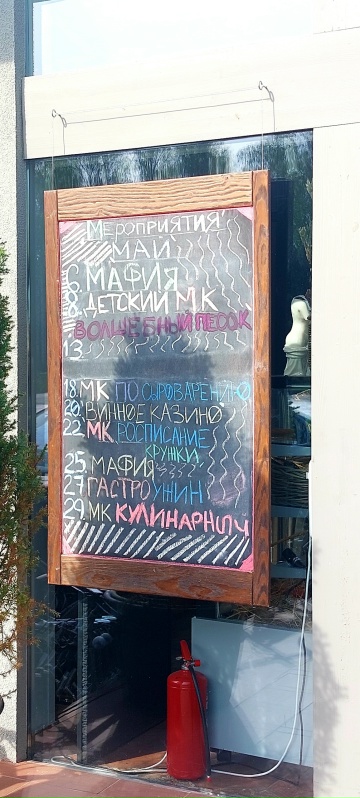 Мероприятия
МАЙ
6. МАФИЯ
8. ДЕТСКИЙ МК
ВОЛШЕБНЫЙ ПЕСОК
13
18. МК ПО СЫРОВАРЕНИЮ
20. ВИННОЕ КАЗИНО
22. МК РОСПИСАНИЕ
КРУЖКИ
25. МАФИЯ
27. ГАСТРОУЖИН
29. МК КУЛИНАРНЫЧ